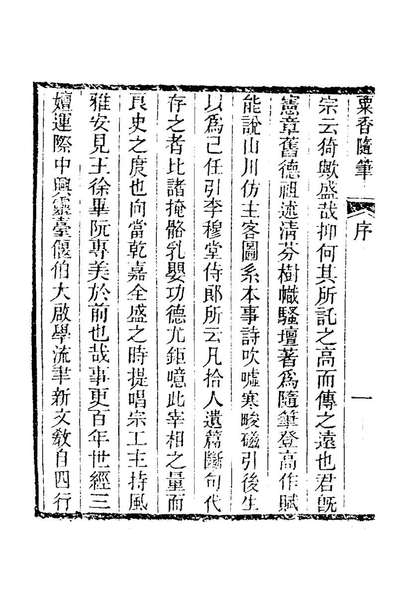 粟香隨筆
序
一
宗云猗歟盛哉抑何其所託之高而傳之遠也君旣
憲章舊德祖述清芬樹幟騷壇著爲隨筆登高作賦
能說山川仿主客圖系本事詩吹噓寒畯磁引後生
以爲己任引李穆堂侍郞所云凡拾人遺篇斷句代
存之者比諸掩骼乳嬰功德尤鉅噫此宰相之量而
良史之度也向當乾嘉全盛之時提唱宗工主持風
雅安見王徐畢阮專美於前也哉事更百年世經三
嬗運際中興靈臺偃伯大啟學流聿新文敎自四行